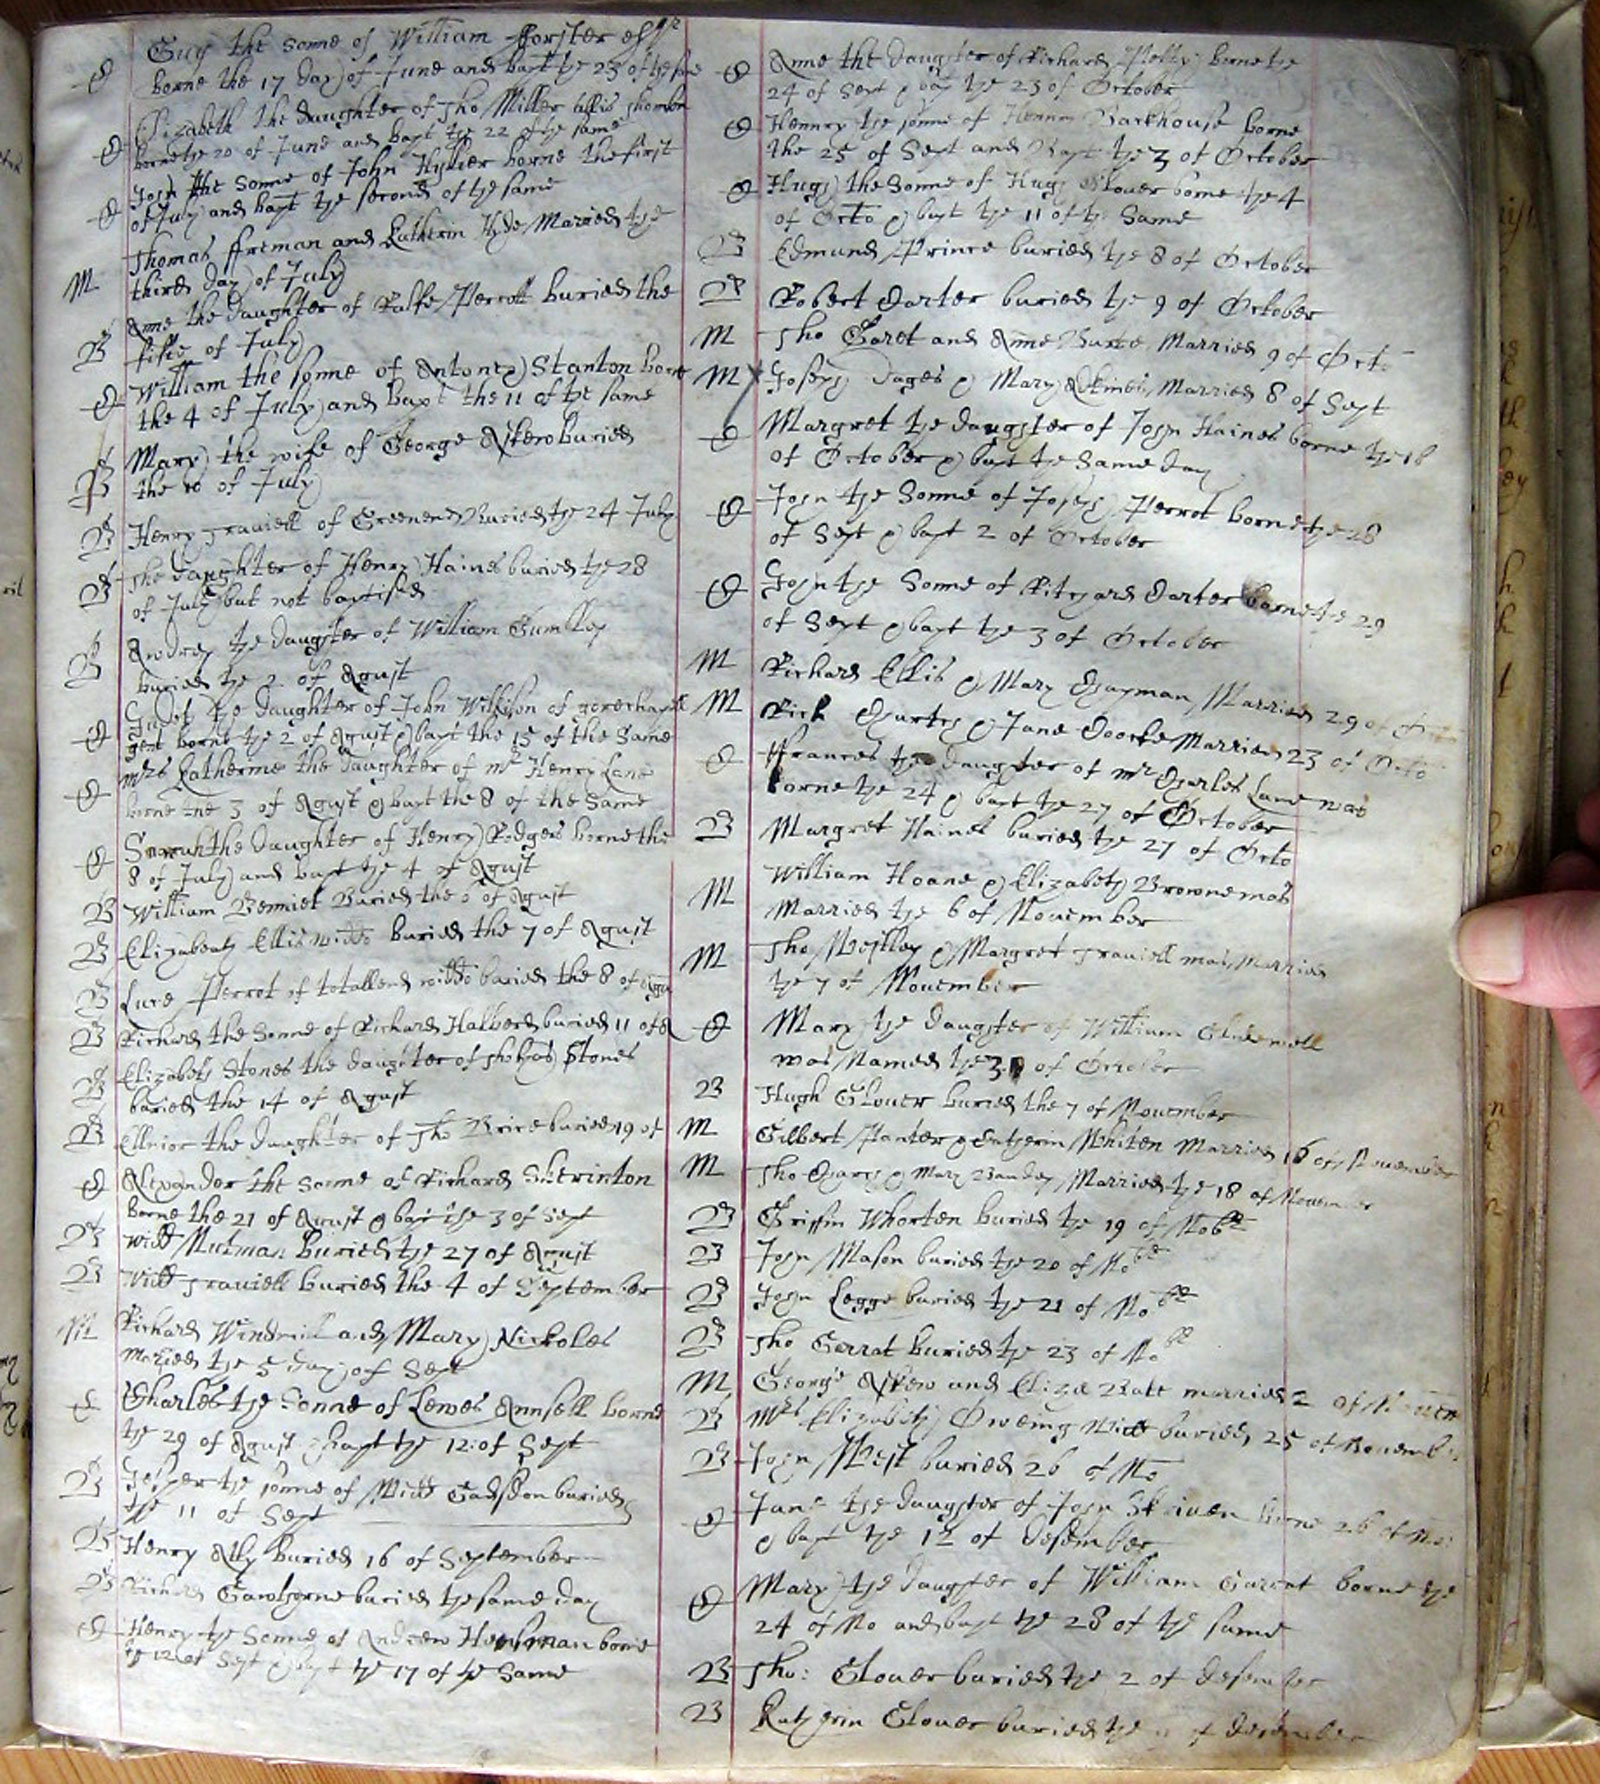 Guy the sonne of William fforster esqr
borne the 17 day of June and bapt the 23 of the
Elizabeth the daughter of Tho Miller
borne the 20 of June and bapt the 22 of the same
John the sonne of John Hyllier borne the first
of July and bapt the second of the same
Thomas ffreman and Katherin Hyde Married the
M third day of July
Anne the daughter of Ralfe Perrott Buried the
B fifte of July
William the sonne of Antony Stanton borne
the 4 of July and bapt the 11 of the same
Mary the wife of George Askew buried
B the 10 of July
B Henry Traviell of Greenend Buried the 24 July
B The daughter of Henry Haines buried the 28
of July but not baptised
the daughter of William Gumbley
B buried the 2 of Agust
the daughter of John Wilkison of
gent borne the 2 of Agust & bapt the 15 of the Same
mrs Katherine the daughter of mr Henry Lane
borne the 3 of Agust & bapt the 8 of the Same
the daughter of Henry Rodgers borne the
8 of July and bapt the 4 of Agust
B William Bennet Buried the 6 of Agust
B Elizabeth Ellis widd buried the 7 of Agust
B Luce Perrot of totallend widd buried the 8 of
B Richard the Sonne of Richard Halberd buried 11 of
B Elizabeth Stones the daughter of Thomas Stones
buried the 14 of Agust
B Ellnior the daughter of Tho Brice buried 19 of
Alexander the sonne of Richard Sherinton
borne the 21 of Agust & bap the 3 of Sept
B Will Mutman buried the 27 of Agust
B Will Traviell buried the 4 of September
M Richard Windmill and Mary Nickoles
Maried the 5 day of Sept
Charles the Sonne of Lewes Annsell borne
the 29 of Agust & bapt the 12 of Sept
B Jesper the sonne of Will Gadsdon buried
the 11 of Sept
B Henry Ally buried 16 of September
B Richard Gawthorne buried the same day
Henry the Sonne of Andrew borne
the 12 of Sept & bapt the 17 of the Same
Anne the daughter of Richard Petty borne the
24 of Sept & bap the 23 of October
Hennry the sonne of Backhouse borne
the 25 of Sept and Bapt the 3 of October
Hugh the Sonne of Hugh Glover borne the 4
of Octo & bapt the 11 of the Same
B Edmund Prince buried the 8 of October
B Robert Carter buried the 9 of October
M Tho Garet and Anne Married 9 of Octo
M Joseph & Mary Married 8 of Sept
Margret the daughter of John Haines borne the 18
of October & bapt the Same day
John the Sonne of Joseph Perrot borne the 28
of Sept & bapt 2 of October
John the Sonne of Ritchard Carter borne the 29
of Sept & bapt the 3 of October
M Richard Ellis & Mary Chapman Married 29 of
M Rich & Jane Coocke Married 23 of Octo
ffrances the daughter of mr Charles Lane was
borne the 24 & bapt the 27 of October
B Margret Haines buried the 27 of Octo
M William Hoane & Elizabeth Browne was
Married the 6 of November
M Tho Westley & Margret Traviell was Married
the 7 of November
Mary the daughter of William
was Named the of October
B Hugh Glover buried the 7 of November
M Gilbert & Catherin Whiten Married 16 of November
M Tho & Mary Married the 18 of November
B Griffin Whorten buried the 19 of Nober
B John Mason buried the 20 of Nober
B John Legge buried the 21 of Nober
B Tho Garrat buried the 23 of Nober
M George Askew and Eliza Ball married 2 of
B Mrs Elizabeth Oweing buried 25 of
B John West buried 26 of No
Jane the daughter of John Skriven borne 26 of No
& bapt the 12 of desember
Mary the daughter of William Garrat borne the
24 of No and bapt the 28 of the same
B Tho: Glover buried the 2 of desember
B Katherin Glover buried the of desember